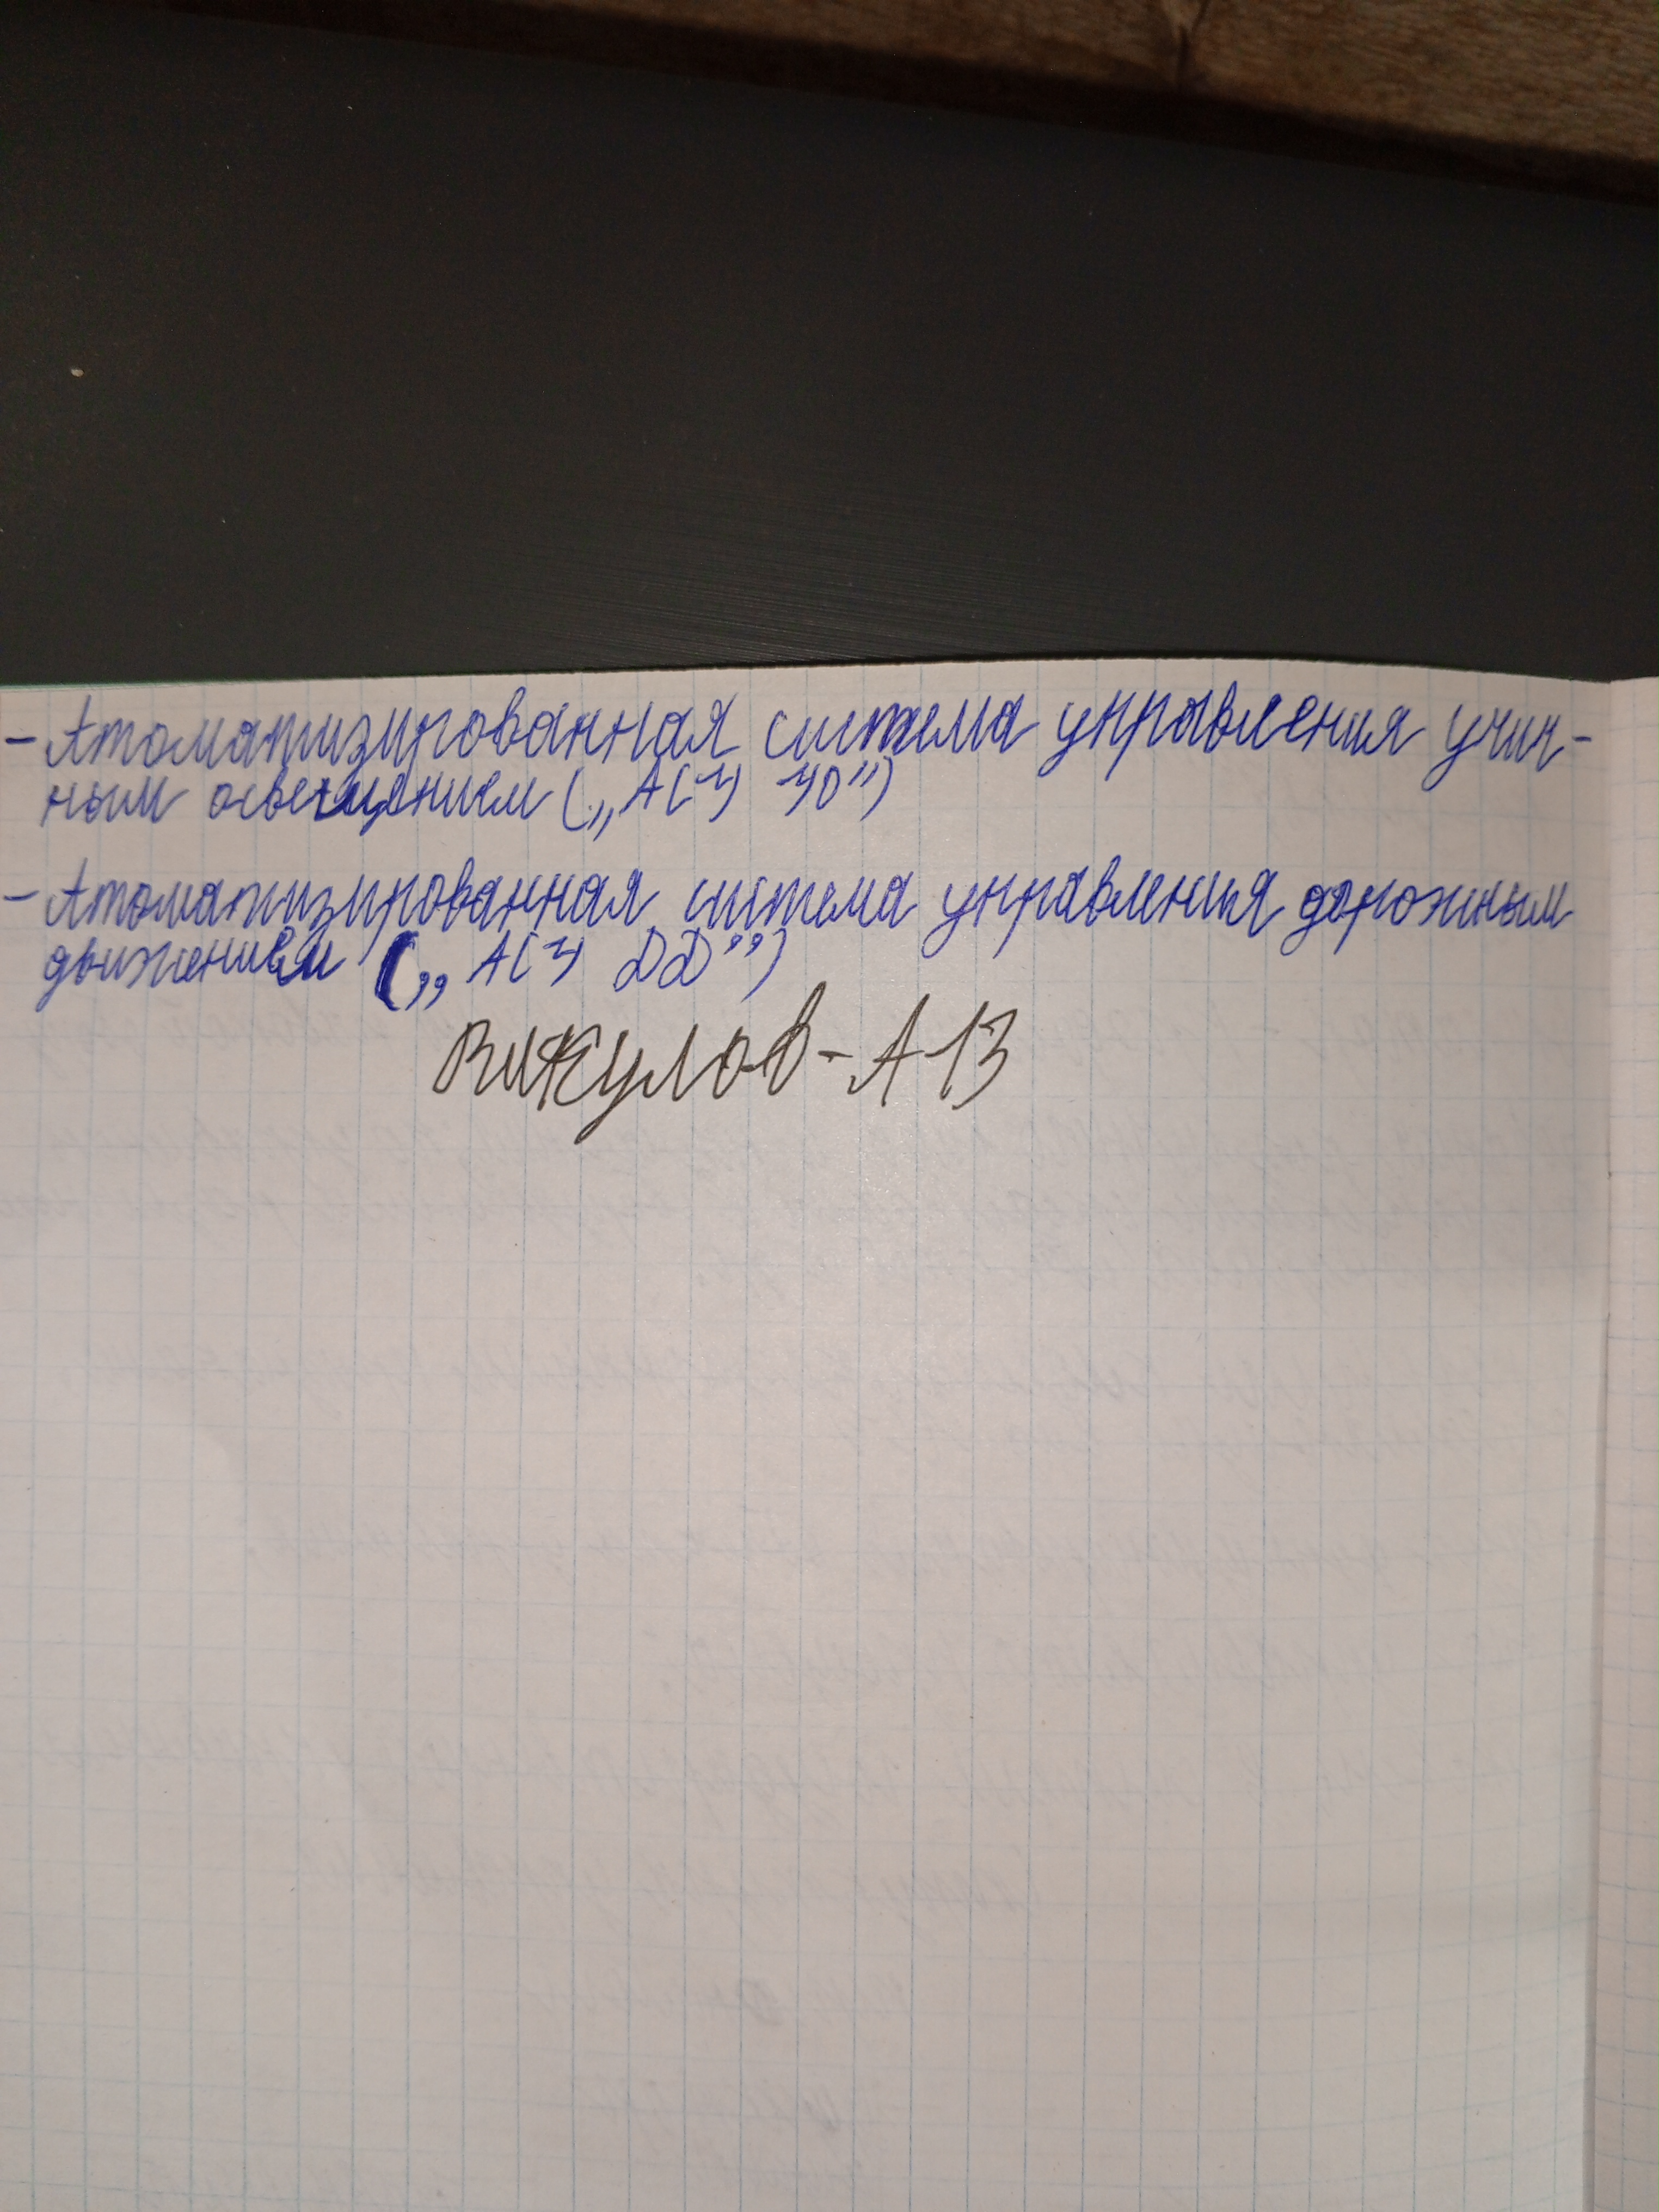 - Атоматизированная система управления учич-
ным освещением („АСУ УО")
- Атоматизированная система управления дорожным
движением („АСУ ДД")
Викулов-А-13